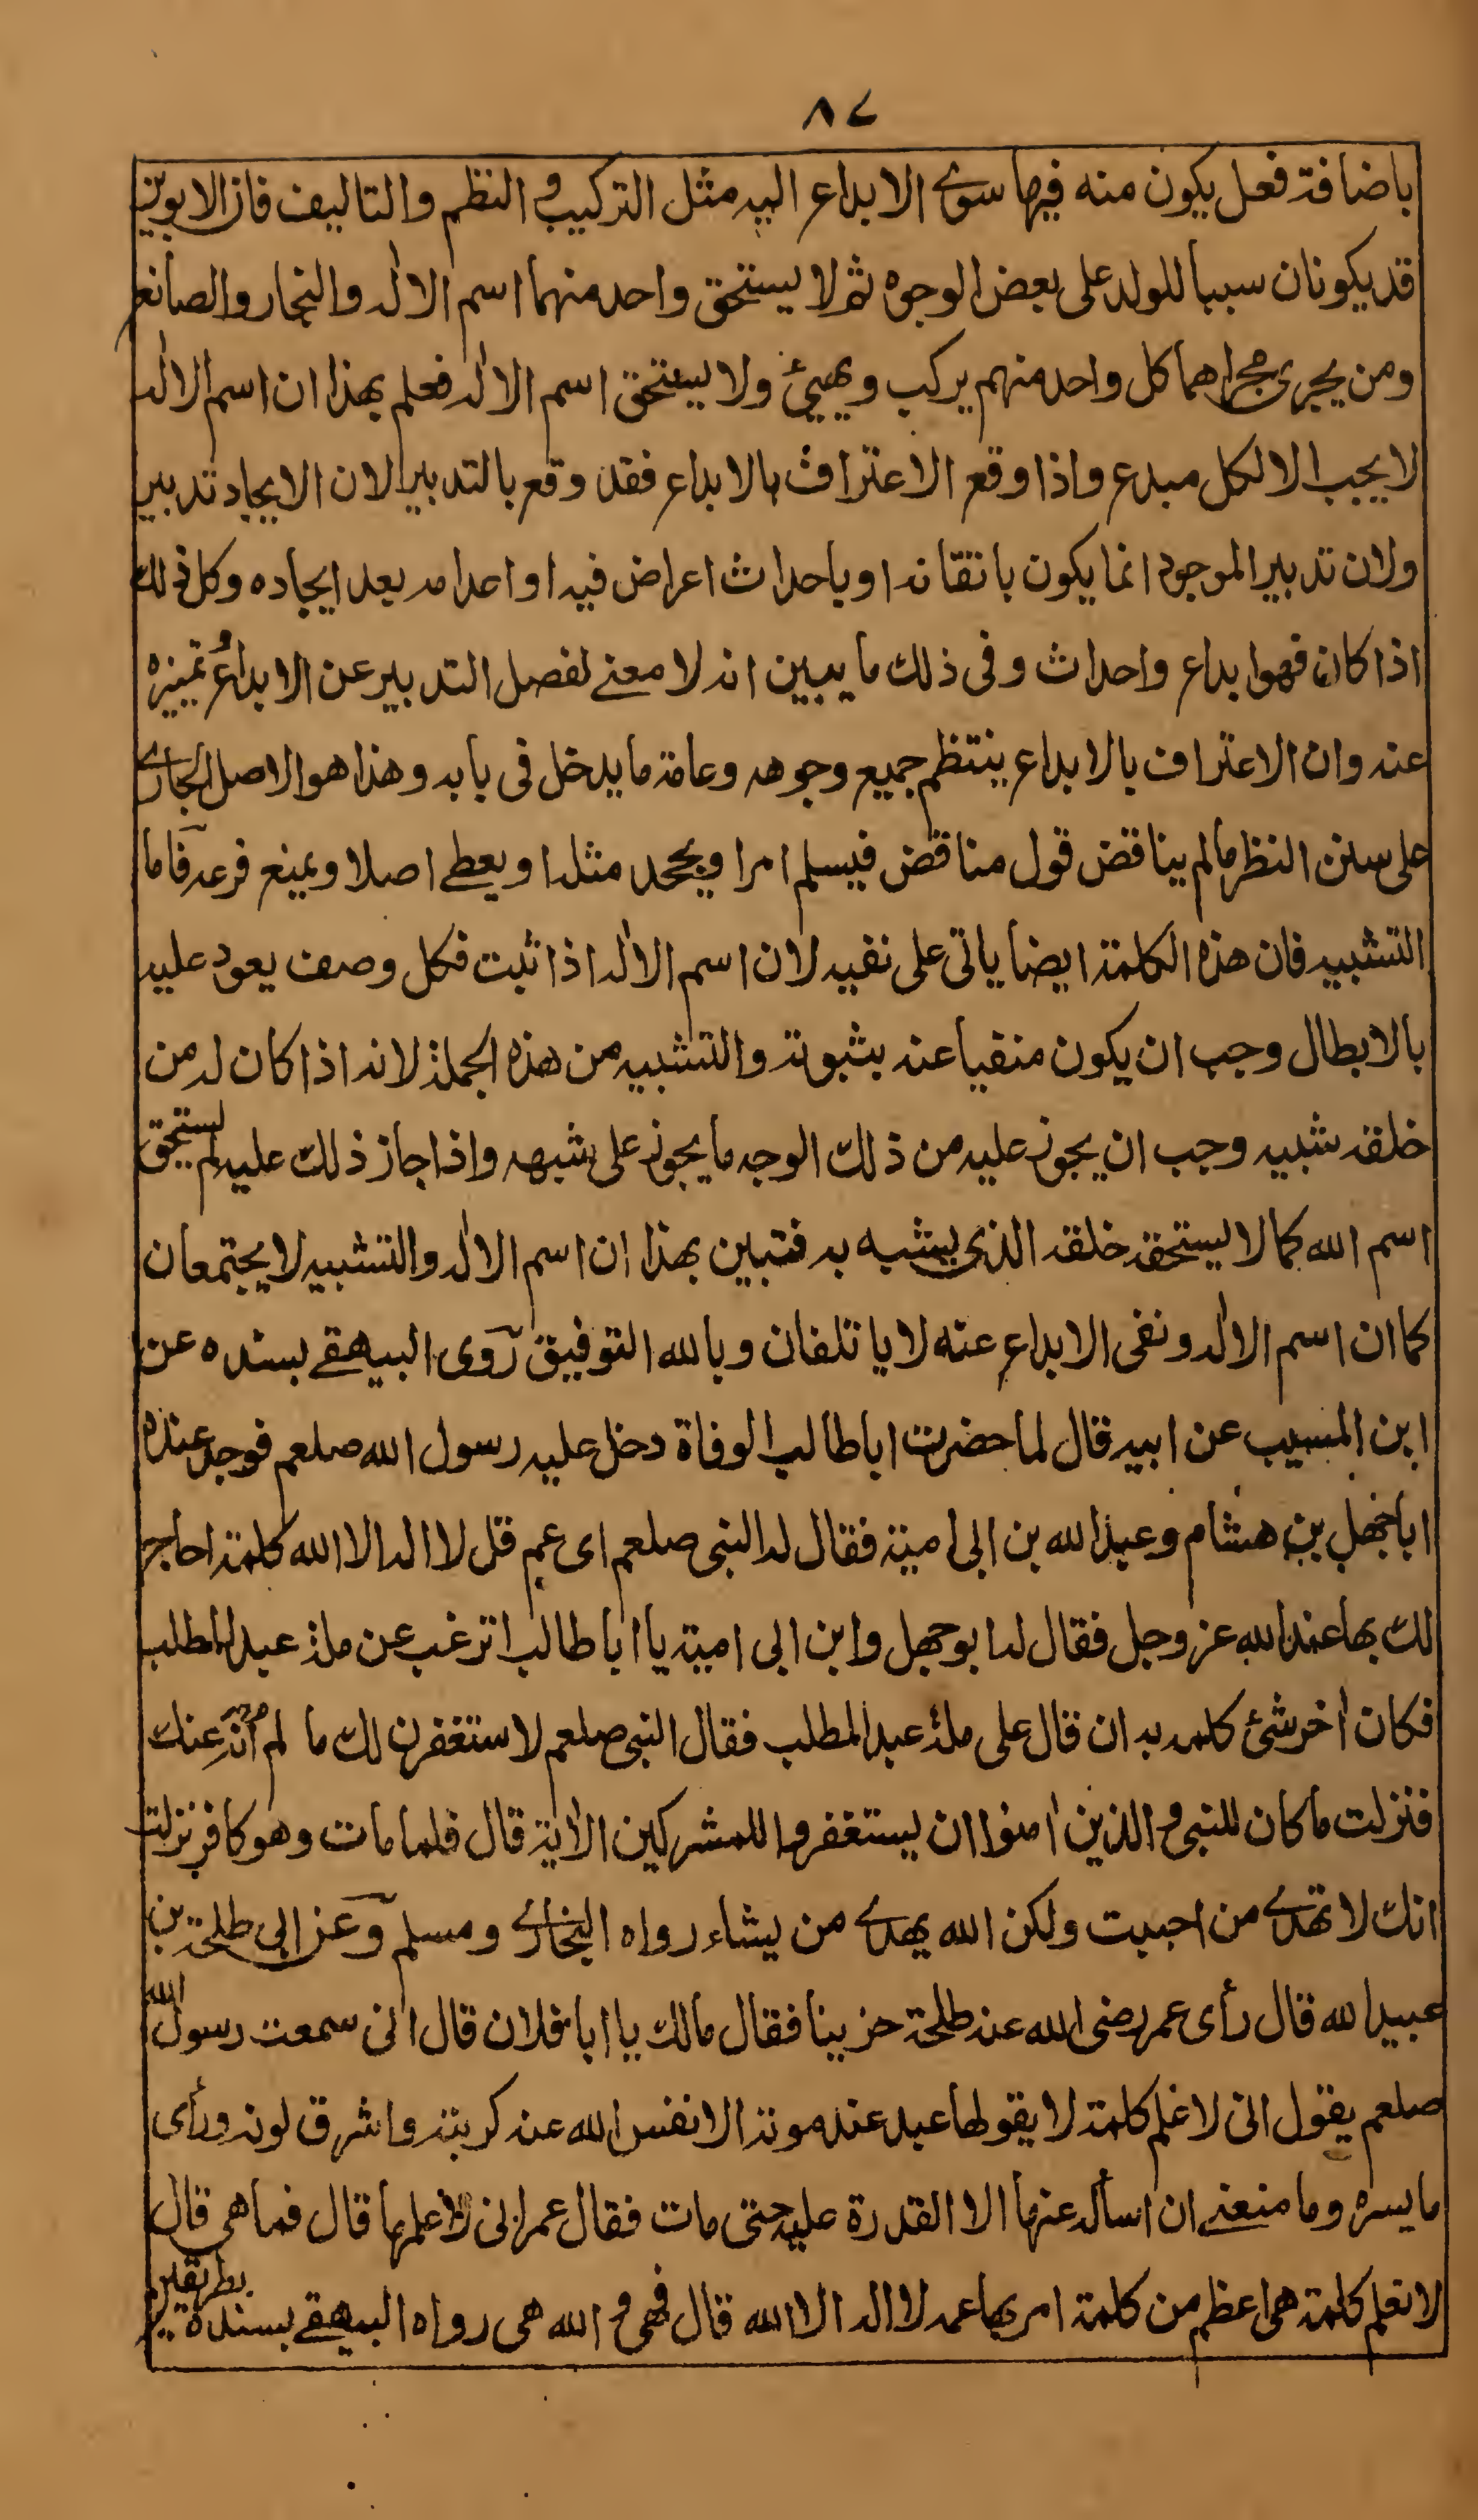 ٨٧
باضافة فعل يكون منه فيها سوى الابداع اليه مثل التركيب و النظم والتاليف فان الابوين
قد يكونان سببا للولد على بعض الوجوه ثم لا يستحق واحد منهما اسم الاله والنجار والصانع
ومن يجرى مجراهما كل واحد منهم يركب ويهيئ ولا يستحق اسم الاله فعلم بهذا ان اسم الاله
لا يجب الا لكل مبدع واذا وقع الاعتراف بالابداع فقد وقع بالتدبير لان الايجاد تدبير
ولان تدبير الموجود انما يكون باتقانه او باحداث اعراض فيه او اعدامه بعد ايجاده وكل ذلك
اذا كان فهو ابداع واحداث وفى ذلك ما يبين انه لا معنى لفصل التدبير عن الابداع و تميزه
عنه وان الاعتراف بالابداع ينتظم جميع وجوهه وعامة ما يدخل فى بابه وهذا هو الاصل الجارى
على سنن النظر ما لم يناقض قول مناقض فيسلم امرا ويجحد مثله او يعطى اصلا ويمنع فرعه فاما
التشبيه فان هذه الكلمة ايضا ياتى على نفيه لان اسم الاله اذا ثبت فكل وصف يعود عليه
بالابطال وجب ان يكون منفيا عنه بثبوته والتشبيه من هذه الجملة لانه اذا كان له من
خلقه شبيه وجب ان يجوز عليه من ذلك الوجه ما يجوز على شبهه واذا جاز ذلك عليه لم يستحق
اسم الله كما لا يستحقه خلقه الذى يشبه به فتبين بهذا ان اسم الاله والتشبيه لا يجتمعان
كما ان اسم الاله ونفى الابداع عنه لا ياتلفان وبالله التوفيق روى البيهقى بسنده عن
ابن المسيب عن ابيه قال لما حضرت اباطالب الوفاة دخل عليه رسول الله صلعم فوجد عنده
اباجهل بن هشام وعبدالله بن ابى امية فقال له النبى صلعم اى عم قل لا اله الا الله كلمة احاج
لك بها عند الله عز وجل فقال له ابوجهل وابن ابى امية يا اباطالب اترغب عن ملة عبدالمطلب
فكان اخر شئ كلمه به ان قال على ملة عبدالمطلب فقال النبى صلعم لاستغفرن لك ما لم انه عنك
فنزلت ما كان للنبى و الذين امنوا ان يستغفروا للمشركين الاية قال فلما مات وهو كافر نزلت
انك لا تهدى من احببت ولكن الله يهدى من يشاء رواه البخارى ومسلم وعن ابى طلحة بن
عبيدالله قال رأى عمر رضى الله عنه طلحة حزينا فقال مالك يا ابا فلان قال انى سمعت رسول الله
صلعم يقول انى لاعلم كلمة لا يقولها عبد عند موته الا نفس الله عنه كربته واشرق لونه ورأى
ما يسره وما منعنى ان اسأله عنها الا القدرة عليه حتى مات فقال عمر انى لاعلمها قال فما هى قال
لا نعلم كلمة هى اعظم من كلمة امر بها عمه لا اله الا الله قال فهى و الله هى رواه البيهقى بسنده بطريقين